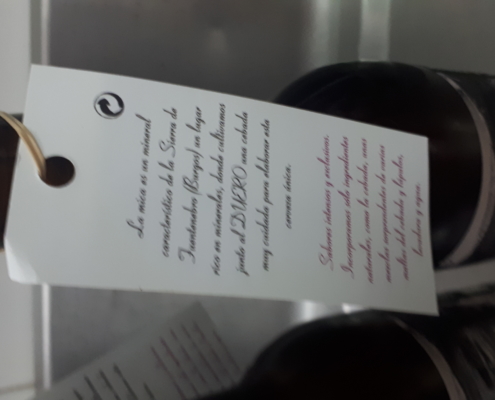 La mica es un mineral
característico de la Sierra de
Fuentenebro (Burgos) un lugar
rico en minerales, donde cultivamos
junto al DUERO una cebada
muy cuidada para elaborar esta
cerveza única.
Sabores intensos y exclusivos.
Incorporamos solo ingredientes
naturales, como la cebada, unas
maltas
maltas del cebada y lúpulos,
levadura y agua.